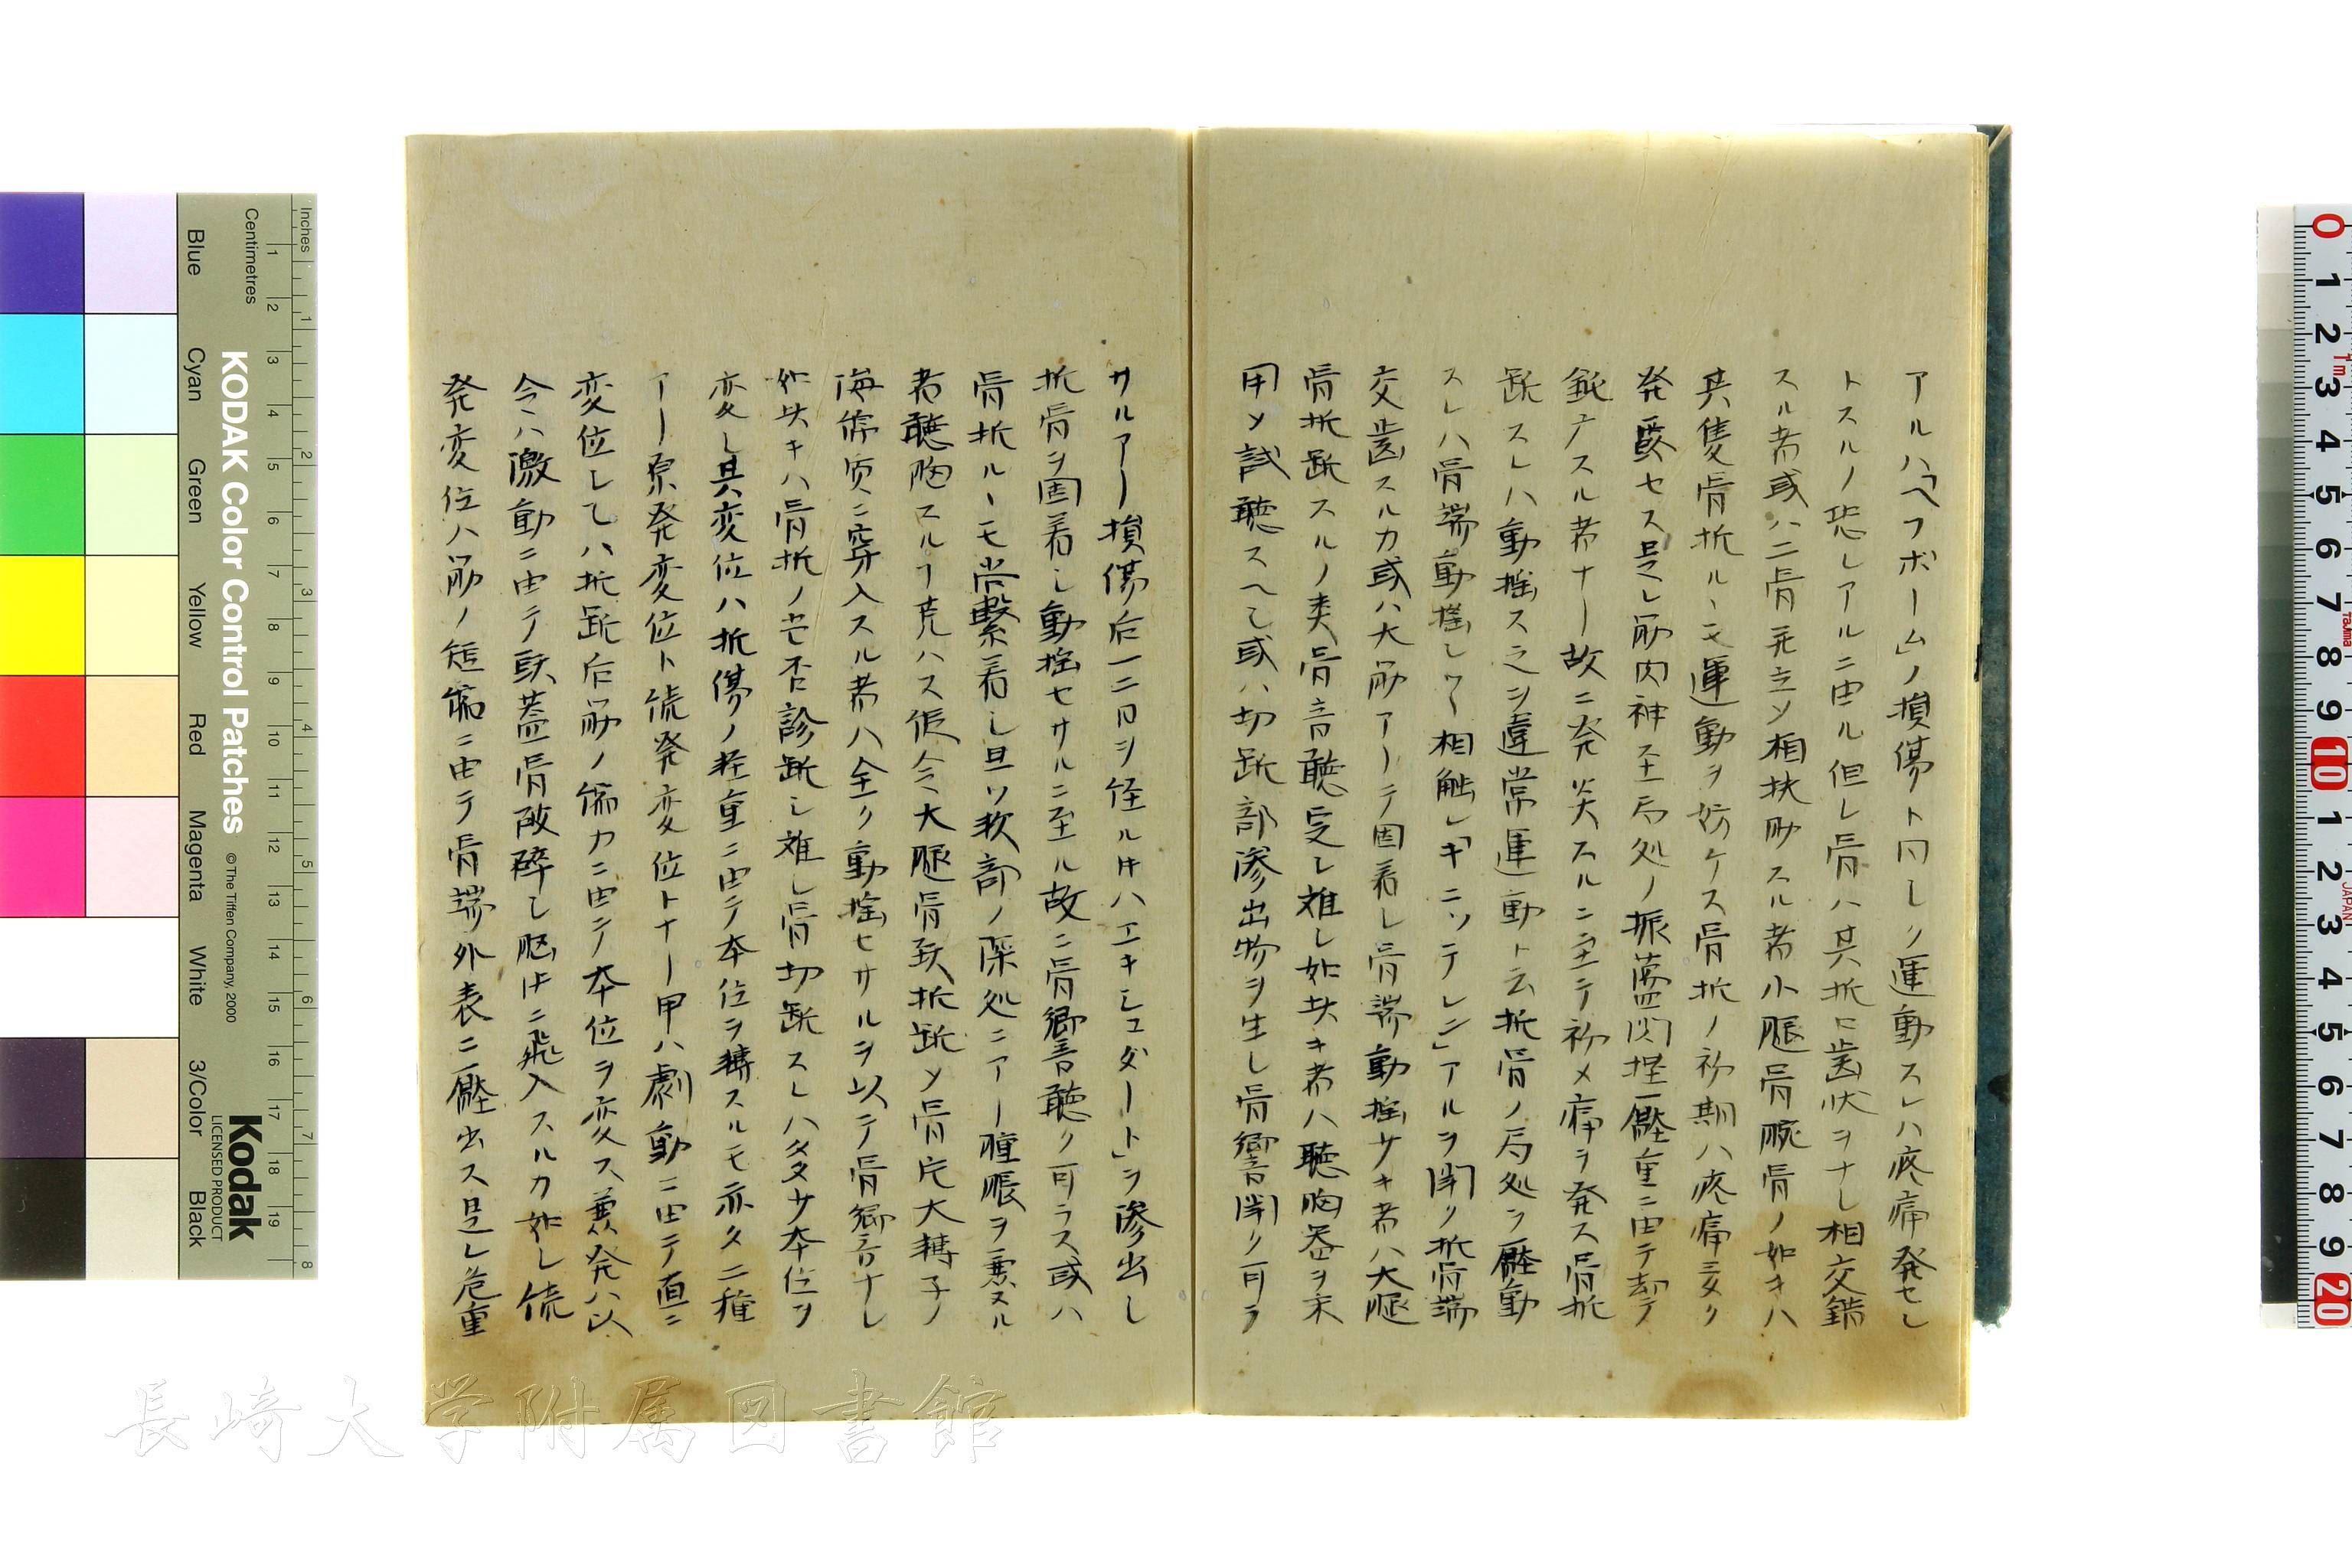 アルハ「ヘフボーム」ノ損傷ト同しク運動スレハ疼痛発セし
トスルノ恐しアルニ由ル但し骨ハ其折ニ歯状ヲナし相交錯
スル者或ハ二骨並立ソ相扶助スル者小腿骨腕骨ノ如キハ
其隻骨折ルヽモ運動ヲ妨ケス骨折ノ初期ハ疼痛妄ク
発露セス是レ筋肉神至局処ノ振盪関捏壓重ニ由テ却テ
鈍ナスル者ナー故ニ発炎スルニ至テ初メ痛ヲ発ス骨折
断スレハ動揺ス之ヲ違常運動ト云折骨ノ局処ヲ壓動
スレハ骨端動揺しテ相触レ「ギニッテレン」アルヲ聞ク折骨端
交歯スルカ或ハ大筋アーテ固着し骨端動揺サキ者ハ大腿
骨折断スルノ類骨音聴受し難し如此キ者ハ聴胸器ヲ末
用メ試聴スヘし或ハ切断部滲出物ヲ生し骨響聞ク可ラ
サルアー損傷后一二日ヲ経ル時ハ「エキシュダート」ヲ滲出し
折骨ヲ固着し動揺セサルニ至ル故ニ骨響聴ク可ラス或ハ
骨折ルヽモ尚繋着し且ツ軟部ノ深処ニアー腫脹ヲ兼ヌル
者聴胸スルヿ克ハス仮令ハ大腿骨頚折断ソ骨片大轉子ノ
海綿質ニ穿入スル者ハ全ク動揺セサルヲ以テ骨響音ナし
如此キハ骨折ノ各否診断し難し骨切断スレハ多サ本位ヲ
変し其変位ハ折傷ノ軽重ニ由テ本位ヲ轉スルモ亦タ二種
アー原発変位ト続発変位トナー甲ハ劇動ニ由テ直ニ
変位し乙ハ折断后筋ノ縮力ニ由テ本位ヲ変ス兼発ハ以
令ハ激動ニ由テ頭蓋骨破砕し脳中ニ飛入スルカ如し続
発変位ハ筋ノ短縮ニ由テ骨端外表ニ壓出ス是レ危重
KODAK Color Control Patches
© The Tiffen Company, 2000
Kodak
LICENSED PRODUCT
Inches
Centimetres
Blue
Cyan
Green
Yellow
Red
Magenta
White
3/Color
Black
長崎大学附属図書館